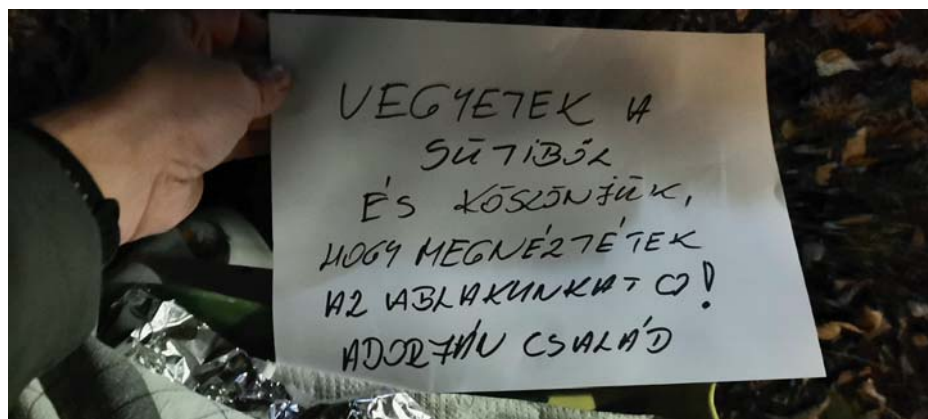 VEGYETEK A
SÜTIBŐL
ÉS KÖSZÖNJÜK,
HOGY MEGNÉZTÉTEK
AZ ABLAKUNKAT ♡!
ADORJÁN CSALÁD